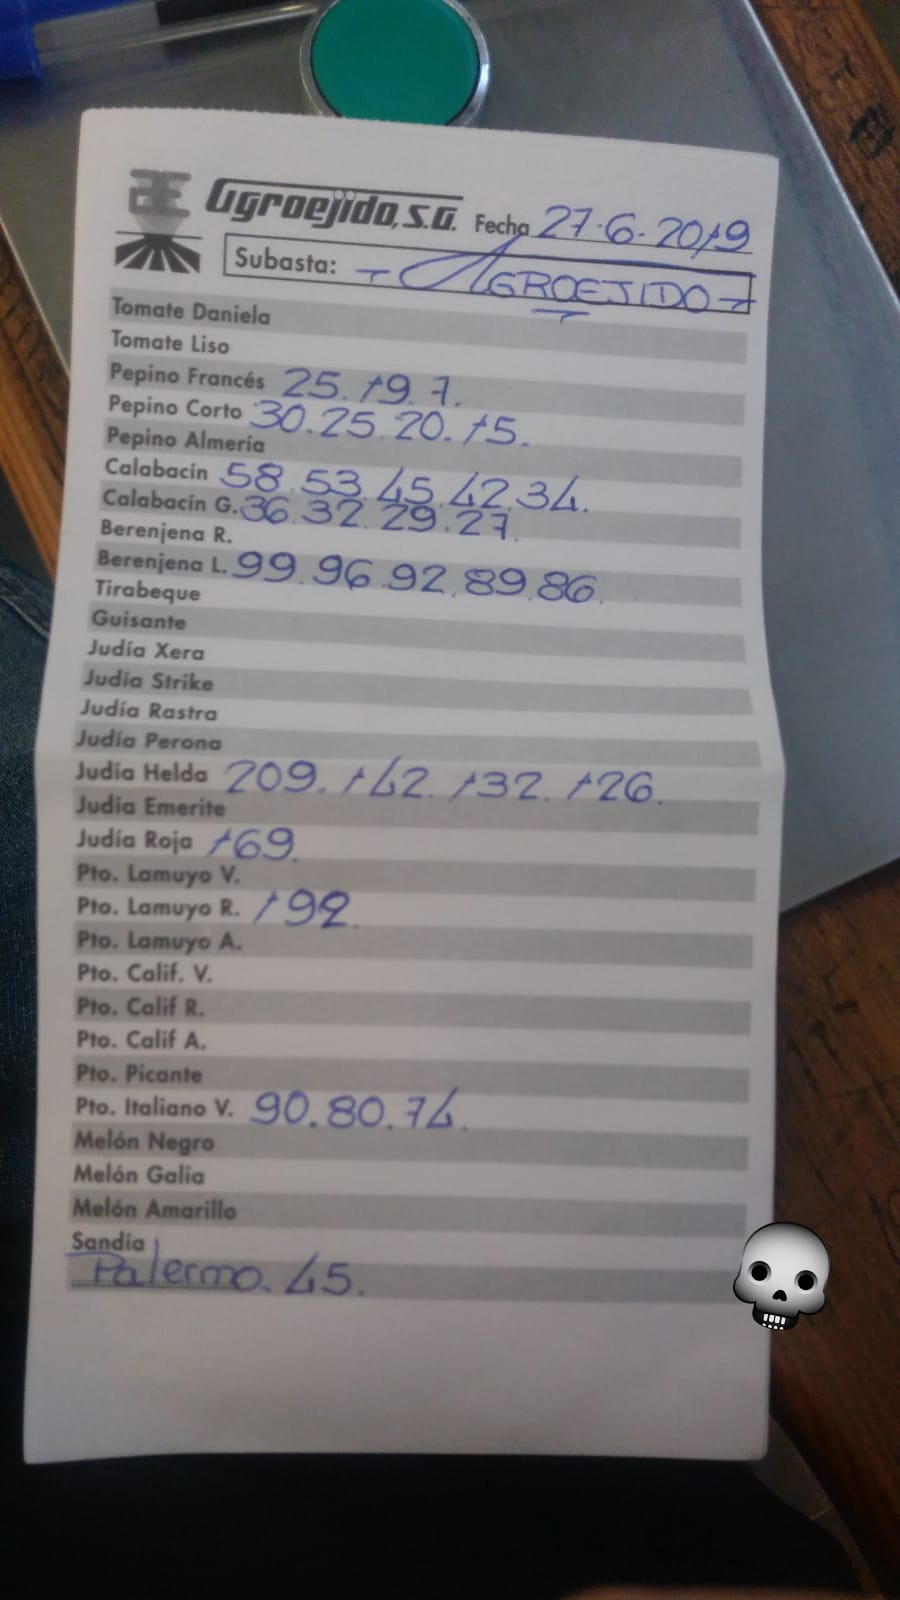 Agroejido, S.A. Fecha 27-6-2019
Subasta: - AGROEJIDO -
Tomate Daniela
Tomate Liso
Pepino Francés 25. 19. 7.
Pepino Corto 30. 25. 20. 15.
Pepino Almería
Calabacín 58. 53. 45. 42. 34.
Calabacín G. 36. 32. 29. 27.
Berenjena R.
Berenjena L. 99. 96. 92. 89. 86.
Tirabeque
Guisante
Judía Xera
Judía Strike
Judía Rastra
Judía Perona
Judía Helda 209. 142. 132. 126.
Judía Emerite
Judía Roja 169.
Pto. Lamuyo V.
Pto. Lamuyo R. 192.
Pto. Lamuyo A.
Pto. Calif. V.
Pto. Calif R.
Pto. Calif A.
Pto. Picante
Pto. Italiano V. 90. 80. 74.
Melón Negro
Melón Galia
Melón Amarillo
Sandía
Palermo. 45.